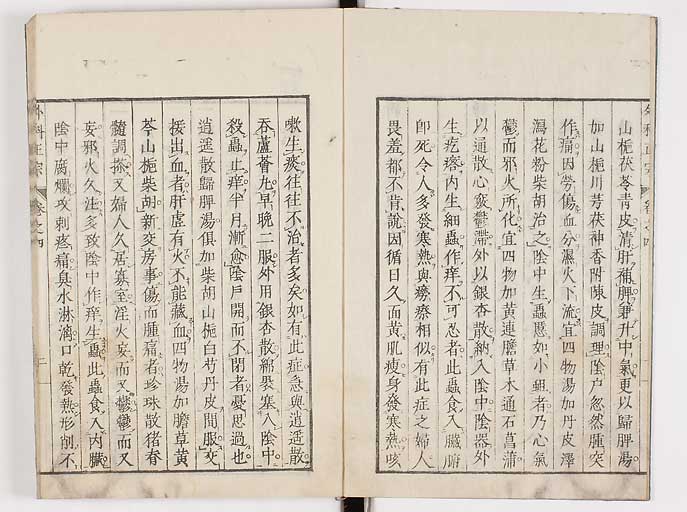 山梔茯苓青皮清肝補脾兼升中氣更以歸脾湯
如山梔川芎茯神香附陳皮調理陰戶忽然腫突
作痛因勞傷血分濕火下流宜四物湯加丹皮澤
瀉花粉柴胡治之陰中生蟲䘌如小蛆者乃心氣
鬱而邪火所化宜四物加黃連膽草木通石菖蒲
以通散心竅鬱滯外以銀杏散納入陰中陰器外
生疙瘩內生細蟲作痒不可忍者此蟲食入臟腑
即死令人多發寒熱與癆瘵相似有此症之婦人
畏羞都不肯說因循日久而黃肌瘦身發寒熱咳
嗽生痰往往不治者多矣如有此症急與逍遥散
吞蘆薈丸早晚二服外用銀杏散綿裹塞入陰中
殺蟲止痒半月漸愈陰戶開而不閉者憂思過也
逍遥散歸脾湯俱加柴胡山梔白芍丹皮間服交
接出血者肝虛有火不能藏血四物湯加膽草黃
芩山梔柴胡新交房事傷而腫痛者珍珠散猪脊
髓調搽又婦人久居寡至淫火妄而又鬱鬱而又
妄邪火久注多致陰中作痒生蟲此蟲食入內臟
陰中腐爛攻刺疼痛臭水淋漓口乾發熱形削不
外科正宗 卷之四 二